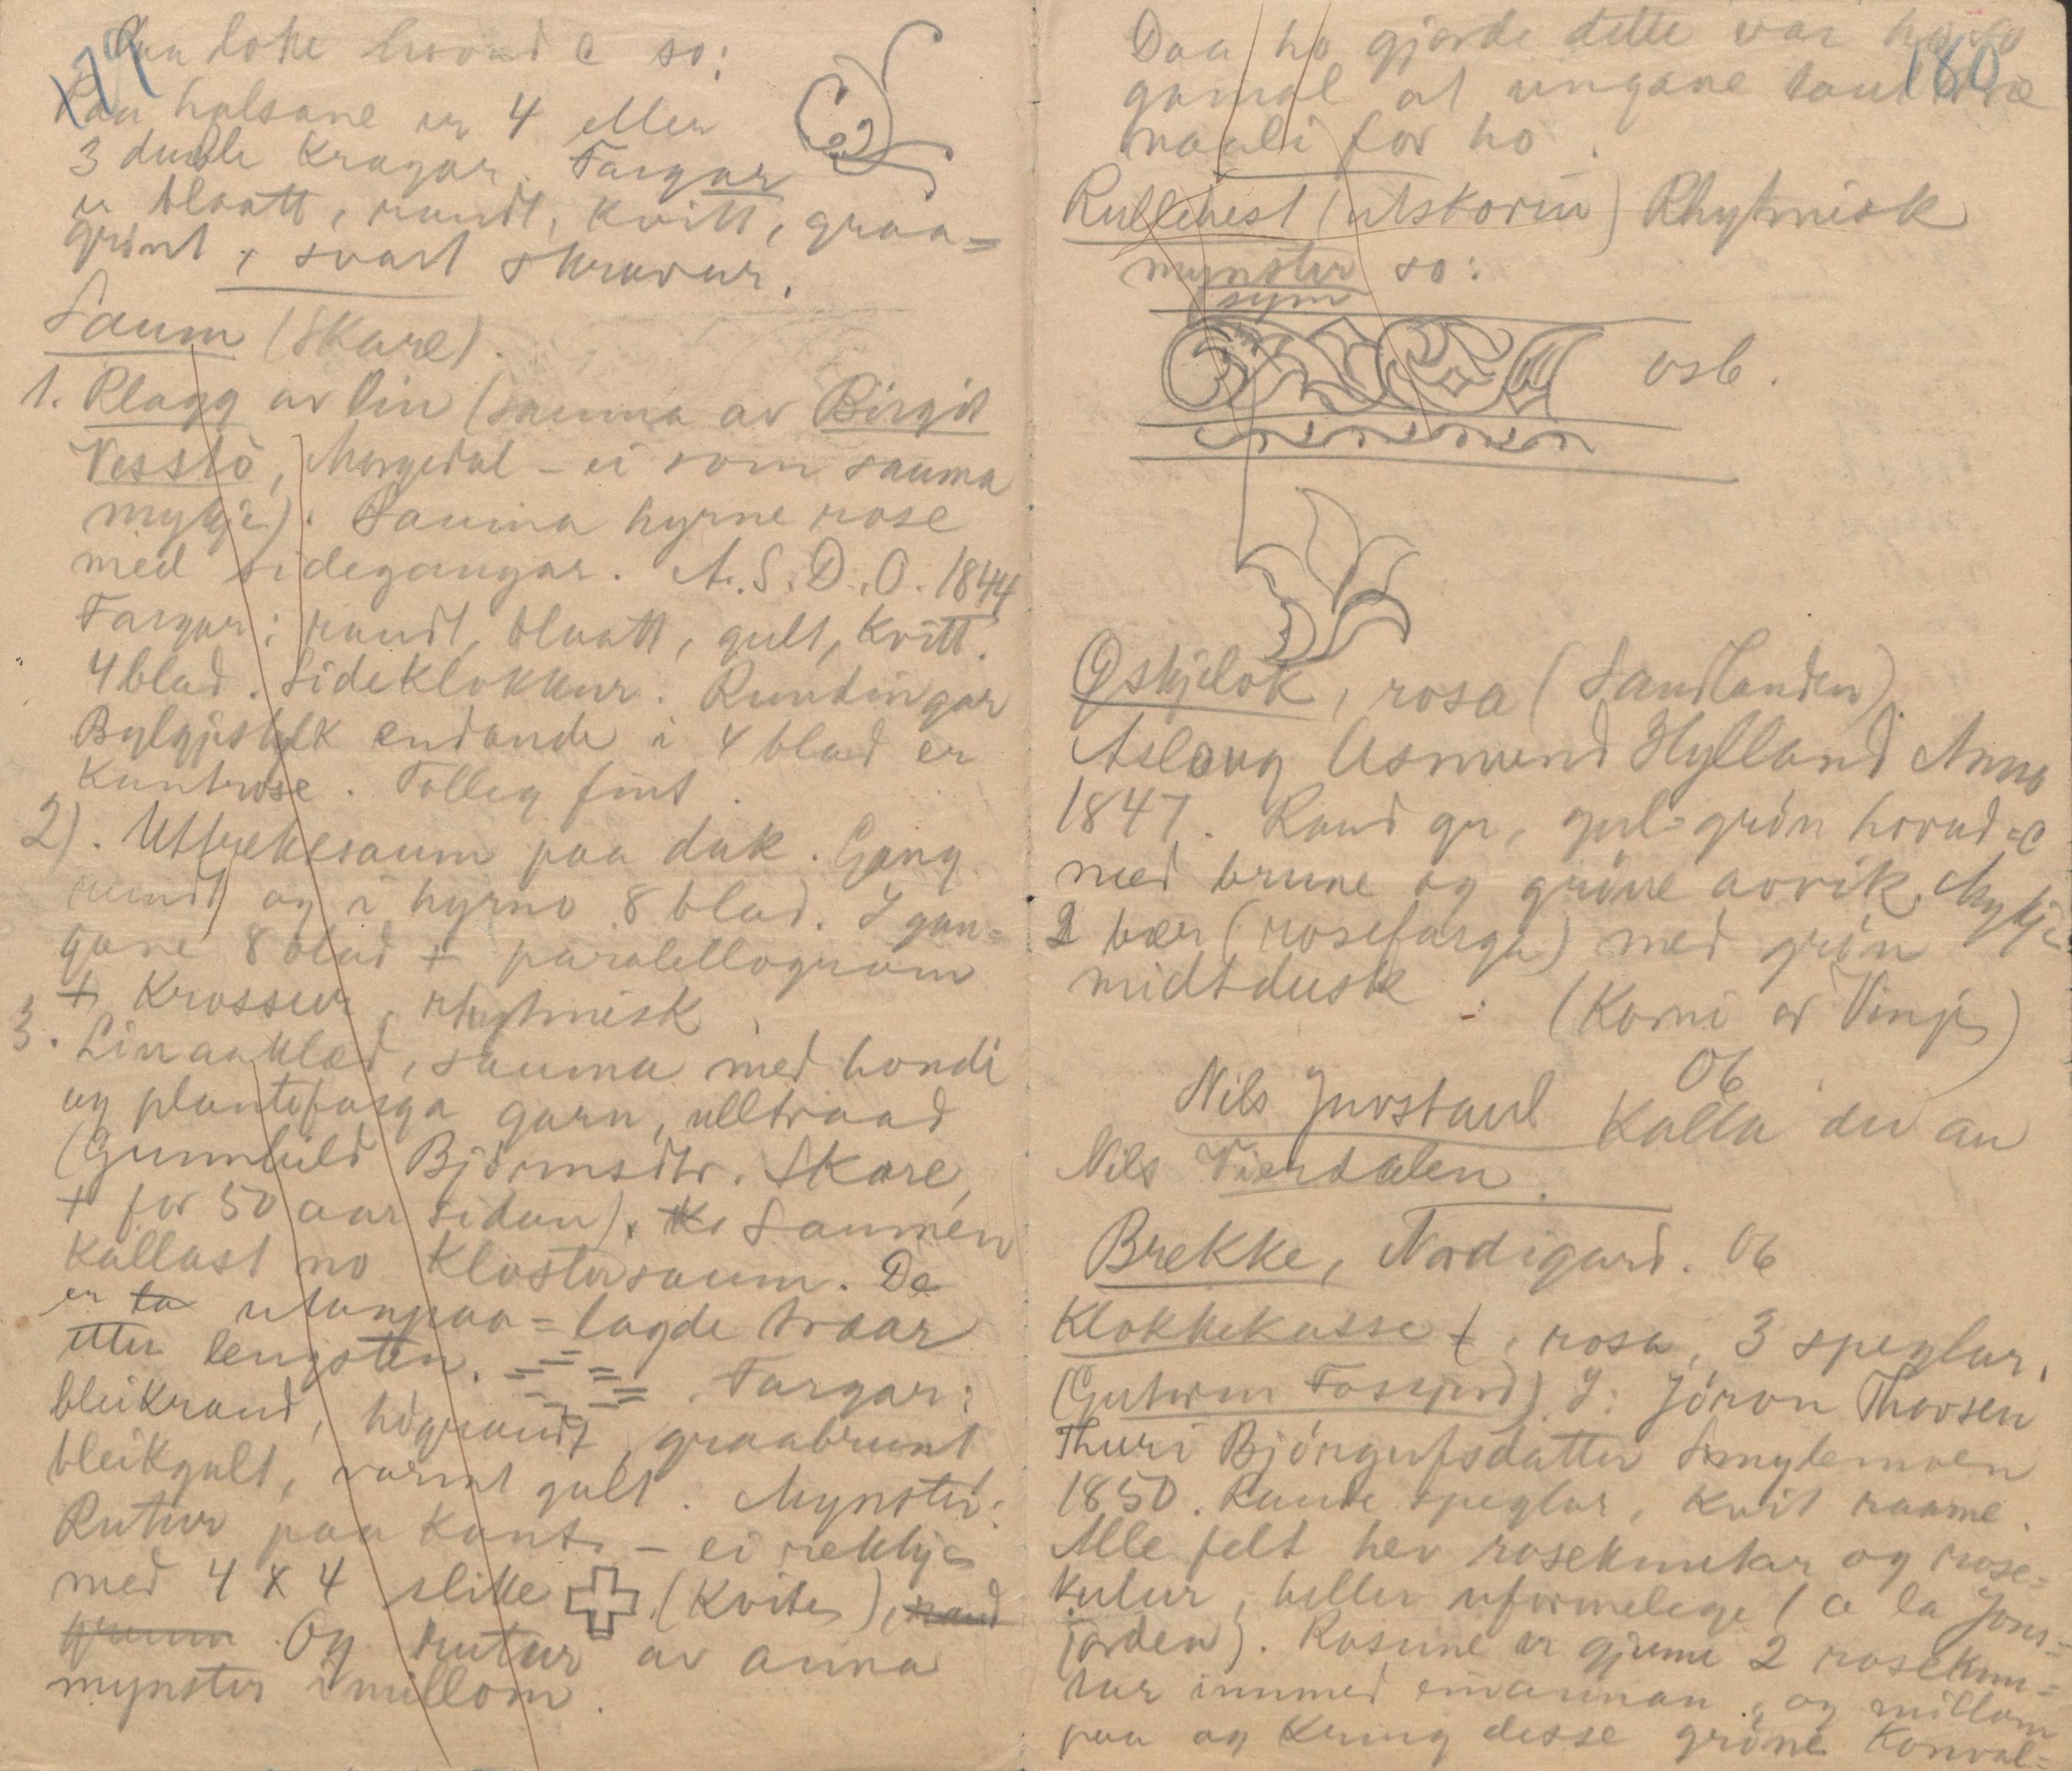 179
Paa loke hovud c so:
Paa halsane er 4 eller
3 duble Kragar. Fargar
er blaatt, raudt, kvitt, graa=
grönt + svart skravur.
Saum (Skare).
1. Plagg av lin (sauma av Birgit
Vesslö, Morgedal - ei som sauma
mykje). Sauma hyrne rose
med sidegangar. A.S.D.O. 1844
Fargar: raudt, blaatt, gult, kvitt.
4 blad. Sideklokkur. Rundingar
Bylgjestylk endande i 4 blad er
Kantrose. Tolleg fint.
2). Uttrekksaum paa duk. Gang
rundt og i hyrno 8 blad. I gan=
gane 8 blad + paralellogram
+ Krossur, rhytmisk.
3. Linaaklæd, sauma med hondi
og plantefarga garn, ulltraad
(Gunnhild Björnsdtr. Skare,
+ for 50 aar sidan). Saumen
kallast no Klostersaum. De
er ta utanpaa=lagde traar
etter lengsten. Fargar:
bleikraud, högraudt, graabrunt
bleikgult, varmt gult. Mynster:
Rutur paa kant. - ei rekkje
med 4 x 4 slike (Kvite), raud
Og rutur av anna
mynster imillom.
180
Daa ho gjorde dette var ho so
gamal at ungane laut træ
naali for ho.
Rullehest (utskorin) Rhytmisk
mynster so:
sym
osb.
Öskjelok, rosa (Sandlanden).
Aslaug Asmund Hylland Anno
1847. Raud gr, gul=grön hovud=c
med brune og gröne avvik. Mykje
2 bær (rosefarga) med grön
midtdusk. (Komi av Vinje)
06
Nils Jurstaul Kalla dei au
Nils Vierdalen.
Brekke, Nordigard. 06
Klokkekasse +, rosa, 3 speglar,
(Gutorm Fossjord). I: Jöron Thorsen
Thuri Björgufsdatter Smylemoen
1850. Raude speglar, kvit raame.
Alle felt hev rosekmutar og rose=
kulur, heller uformelege (a la Jons=
jorden). Rosune er gjerne 2 rosekmu=
tar innmed einannan, og millom
paa og kring desse gröne Konval=